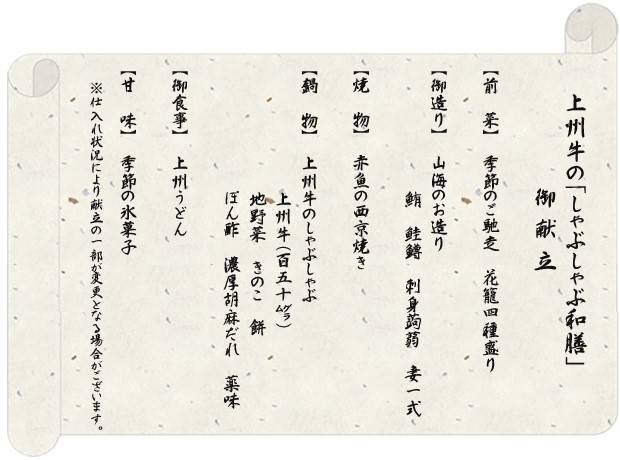 上州牛の「しゃぶしゃぶ和膳」
御献立
【前菜】 季節のご馳走 花籠四種盛り
【御造り】 山海のお造り
鮪 鮭鱒 刺身蒟蒻 妻一式
【焼物】 赤魚の西京焼き
【鍋物】 上州牛のしゃぶしゃぶ
上州牛(百五十㌘)
地野菜 きのこ 餅
ぽん酢 濃厚胡麻だれ 薬味
【御食事】 上州うどん
【甘味】 季節の氷菓子
※仕入れ状況により献立の一部が変更となる場合がございます。